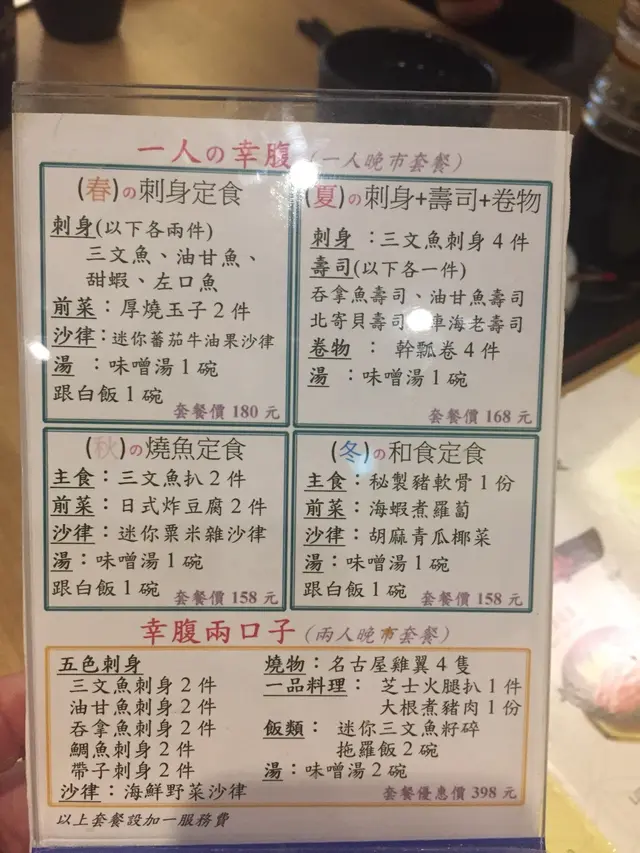 一人の幸腹(一人晚市套餐)
(春)の刺身定食
刺身(以下各兩件)
三文魚、油甘魚、
甜蝦、左口魚
前菜：厚燒玉子2件
沙律：迷你蕃茄牛油果沙律
湯：味噌湯1碗
跟白飯1碗
套餐價 180 元
(夏)の刺身+壽司+卷物
刺身：三文魚刺身4件
壽司(以下各一件)
吞拿魚壽司、油甘魚壽司
北寄貝壽司 車海老壽司
卷物：幹瓢卷4件
湯：味噌湯1碗
套餐價 168 元
(秋)の燒魚定食
主食：三文魚扒2件
前菜：日式炸豆腐2件
沙律：迷你粟米雜沙律
湯：味噌湯1碗
跟白飯1碗
套餐價 158 元
(冬)の和食定食
主食：秘製豬軟骨1份
前菜：海蝦煮羅蔔
沙律：胡麻青瓜椰菜
湯：味噌湯1碗
跟白飯1碗
套餐價 158 元
幸腹兩口子(兩人晚市套餐)
五色刺身
三文魚刺身2件
油甘魚刺身2件
吞拿魚刺身2件
鯛魚刺身2件
帶子刺身2件
沙律：海鮮野菜沙律
燒物：名古屋雞翼4隻
一品料理：芝士火腿扒1件
大根煮豬肉1份
飯類：迷你三文魚籽碎
拖羅飯2碗
湯：味噌湯2碗
套餐優惠價 398 元
以上套餐設加一服務費